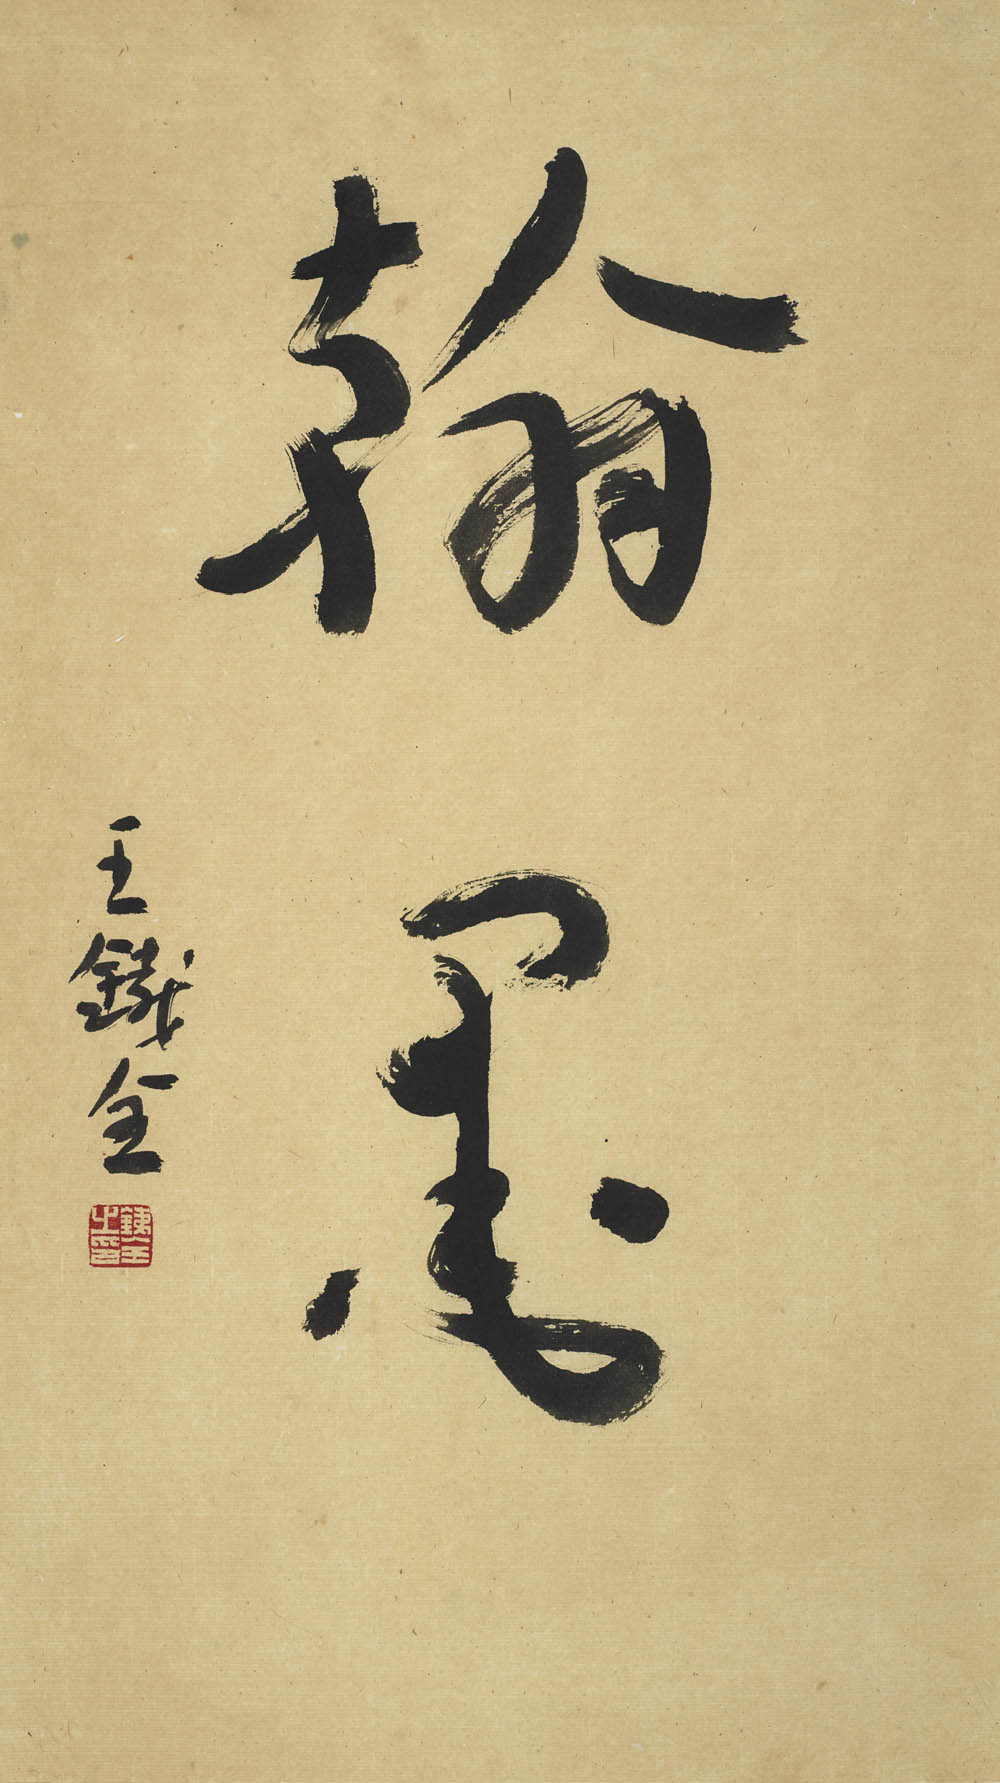 翰墨
王鐵全
鐵全之印